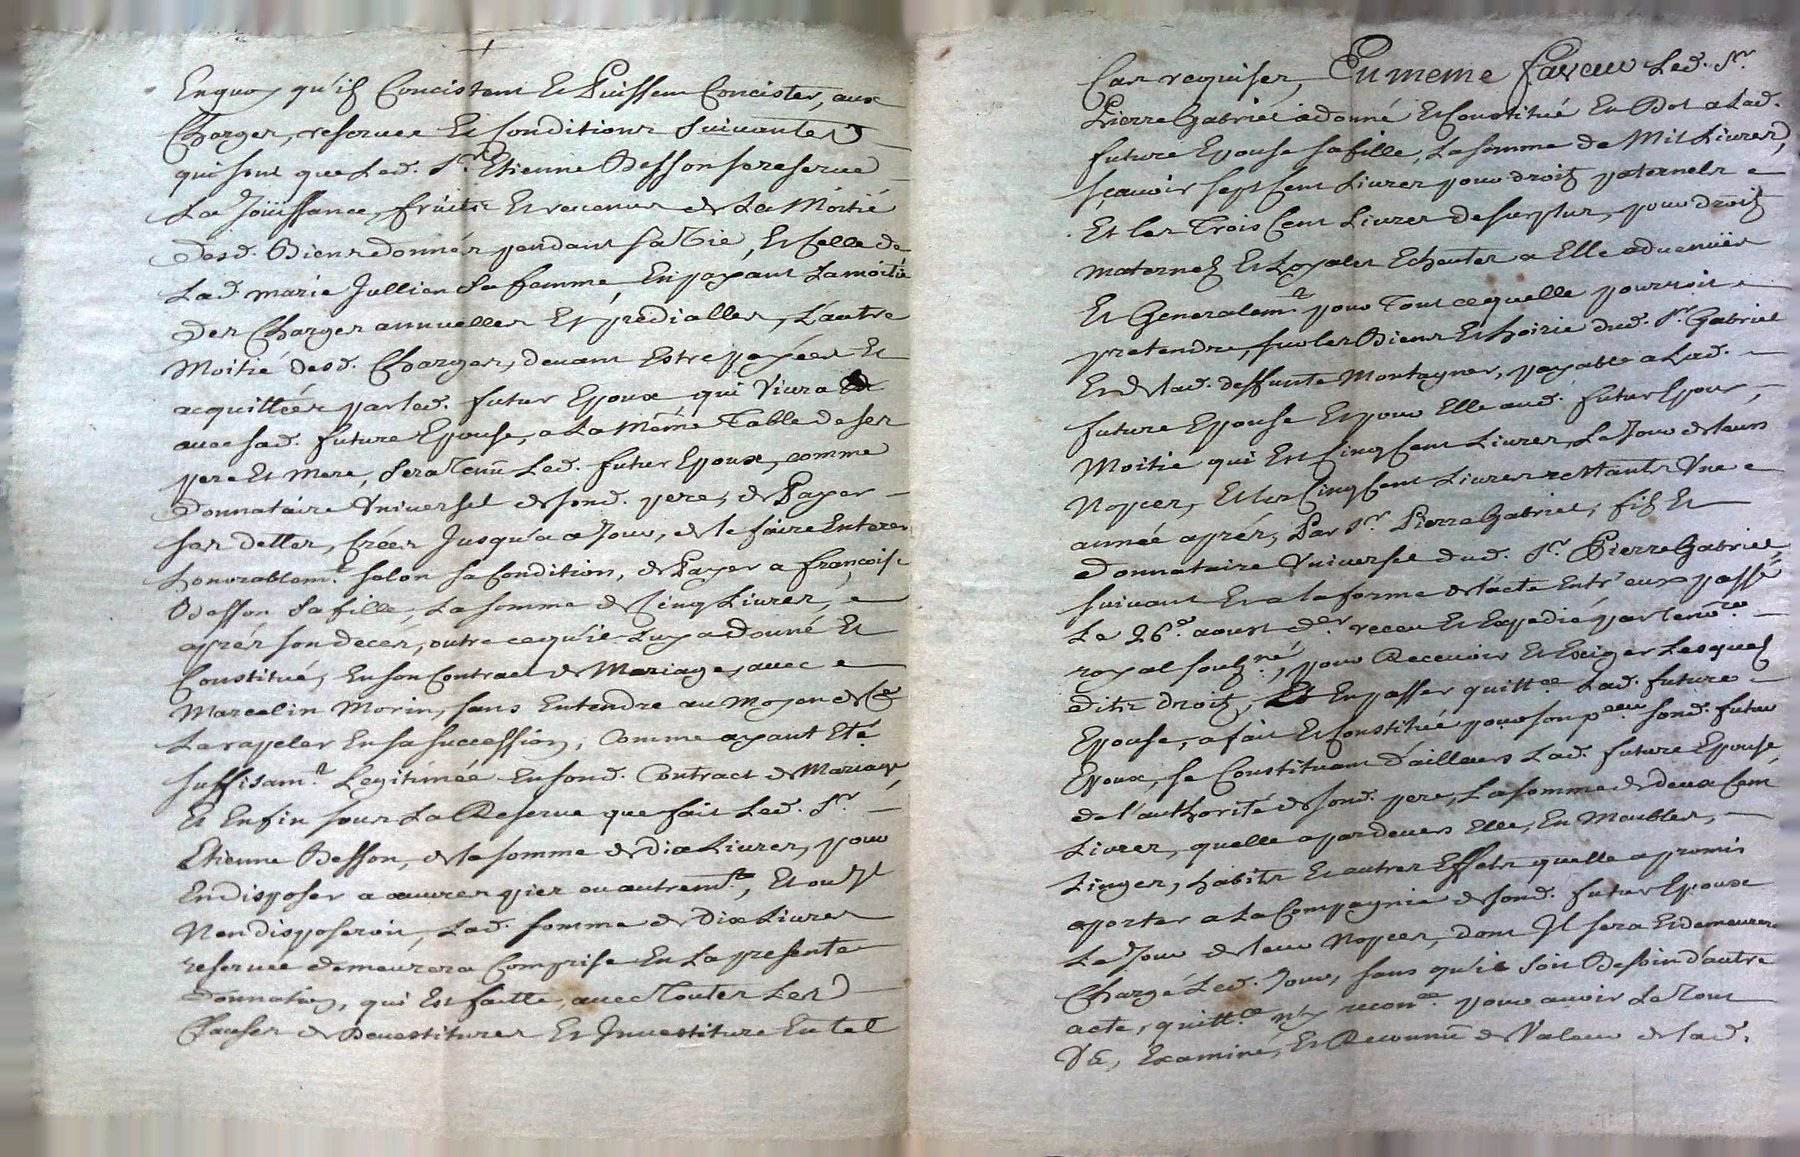 Enquoy qu'ilz Concistent Et Puissent Concister, aux
Charges, reserves Et Conditions Suivantes
qui sont que Led. Sr. Etienne Besson se reserve
La Joüissance, fruits Et revenus de La Moitié
desd. Biens donnés pendant sa Vie, Et Celle de
Lad. marie Jullien Sa femme, En payant La moitié
des Charges annuelles Et prédialles, L'autre
Moitié desd. Charges, devant Estre payées Et
acquittées par led. futur Epoux qui Vivra
avec sad. future Epouse, a La Même Table de ses
pere Et Mere, Sera Tenu Led. futur Epoux, comme
donnataire Universel de sond. pere, de Payer
ses dettes, Créés Jusqu'a ce Jour, de le faire Enterer
honorablemt. selon sa Condition, de Payer a françoise
Besson Sa fille, La somme de Cinq Livres,
aprés son deces, outre ce qu'il Luy a donné Et
Constitué, En son Contract de Mariage, avec
Marcelin Morin, sans Entendre au Moyen de Ce
La rapeler En sa succession, Comme ayant Eté
suffisamt. Legitimée En sond. Contract de Mariage,
Et Enfin sous La Reserve que fait Led. Sr.
Etienne Besson, de la somme de Dix Livres, pour
En disposer a œuvres pies ou autremt., Et ou Il
N'en disposeroit, Lad. somme de Dix Livres
reservée demeurera Comprise En La presente
donnation, qui Est faitte avec Toutes Les
Clauses de Devestitures Et Investiture En tel
Cas requises, En meme faveur Led. Sr.
Pierre Gabriel a donné Et Constitué En Dot a Lad.
future Epouse sa fille, La somme de Mil Livres,
sçavoir sept Cent Livres pour droitz paternels
Et les Trois Cent Livres de surplus, pour droitz
maternelz Et Loyales Echeutes a Elle advenües
Et Generalemt. pour Tout ce quelle pourroit
pretendre, sur les Biens Et hoirie dud. Sr. Gabriel
Et de lad. deffunte Montagner, payable a Lad.
future Epouse Et pour Elle aud. futur Epoux,
Moitié qui Est Cinq Cent Livres, Le Jour de leurs
Nopces, Et les Cinq Cent Livres restants Une
année aprés, Par Sr. Pierre Gabriel, filz Et
donnataire Universel dud. Sr. Pierre Gabriel,
suivant Et a la forme de lacte Entr'eux passé
Le 26e. aoust der. receu Et Expedié par le nore.
royal soubzné., pour Recevoir Et Exiger Lesquelz
ditz droitz, Et En passer quittce. Lad. future
Epouse, a fait Et Constitué pour son pceur. sond. futur
Epoux, se Constituant d'ailleurs Lad. future Epouse
de l'authorité de sond. pere, La somme de deux Cent
Livres, quelle a par devers Elle, En Meubles,
Linges, habits Et autres Effets quelle a promis
aporter a La Compagnie de sond. futur Epoux
Le Jour de leur Nopces, dont Il sera Et demeurera
Chargé Led. Jour, sans qu'il Soit Besoin d'autre
acte, quittce. ny reconce. pour avoir Le Tout
Vû, Examiné, Et Reconnu de Valeur de lad.